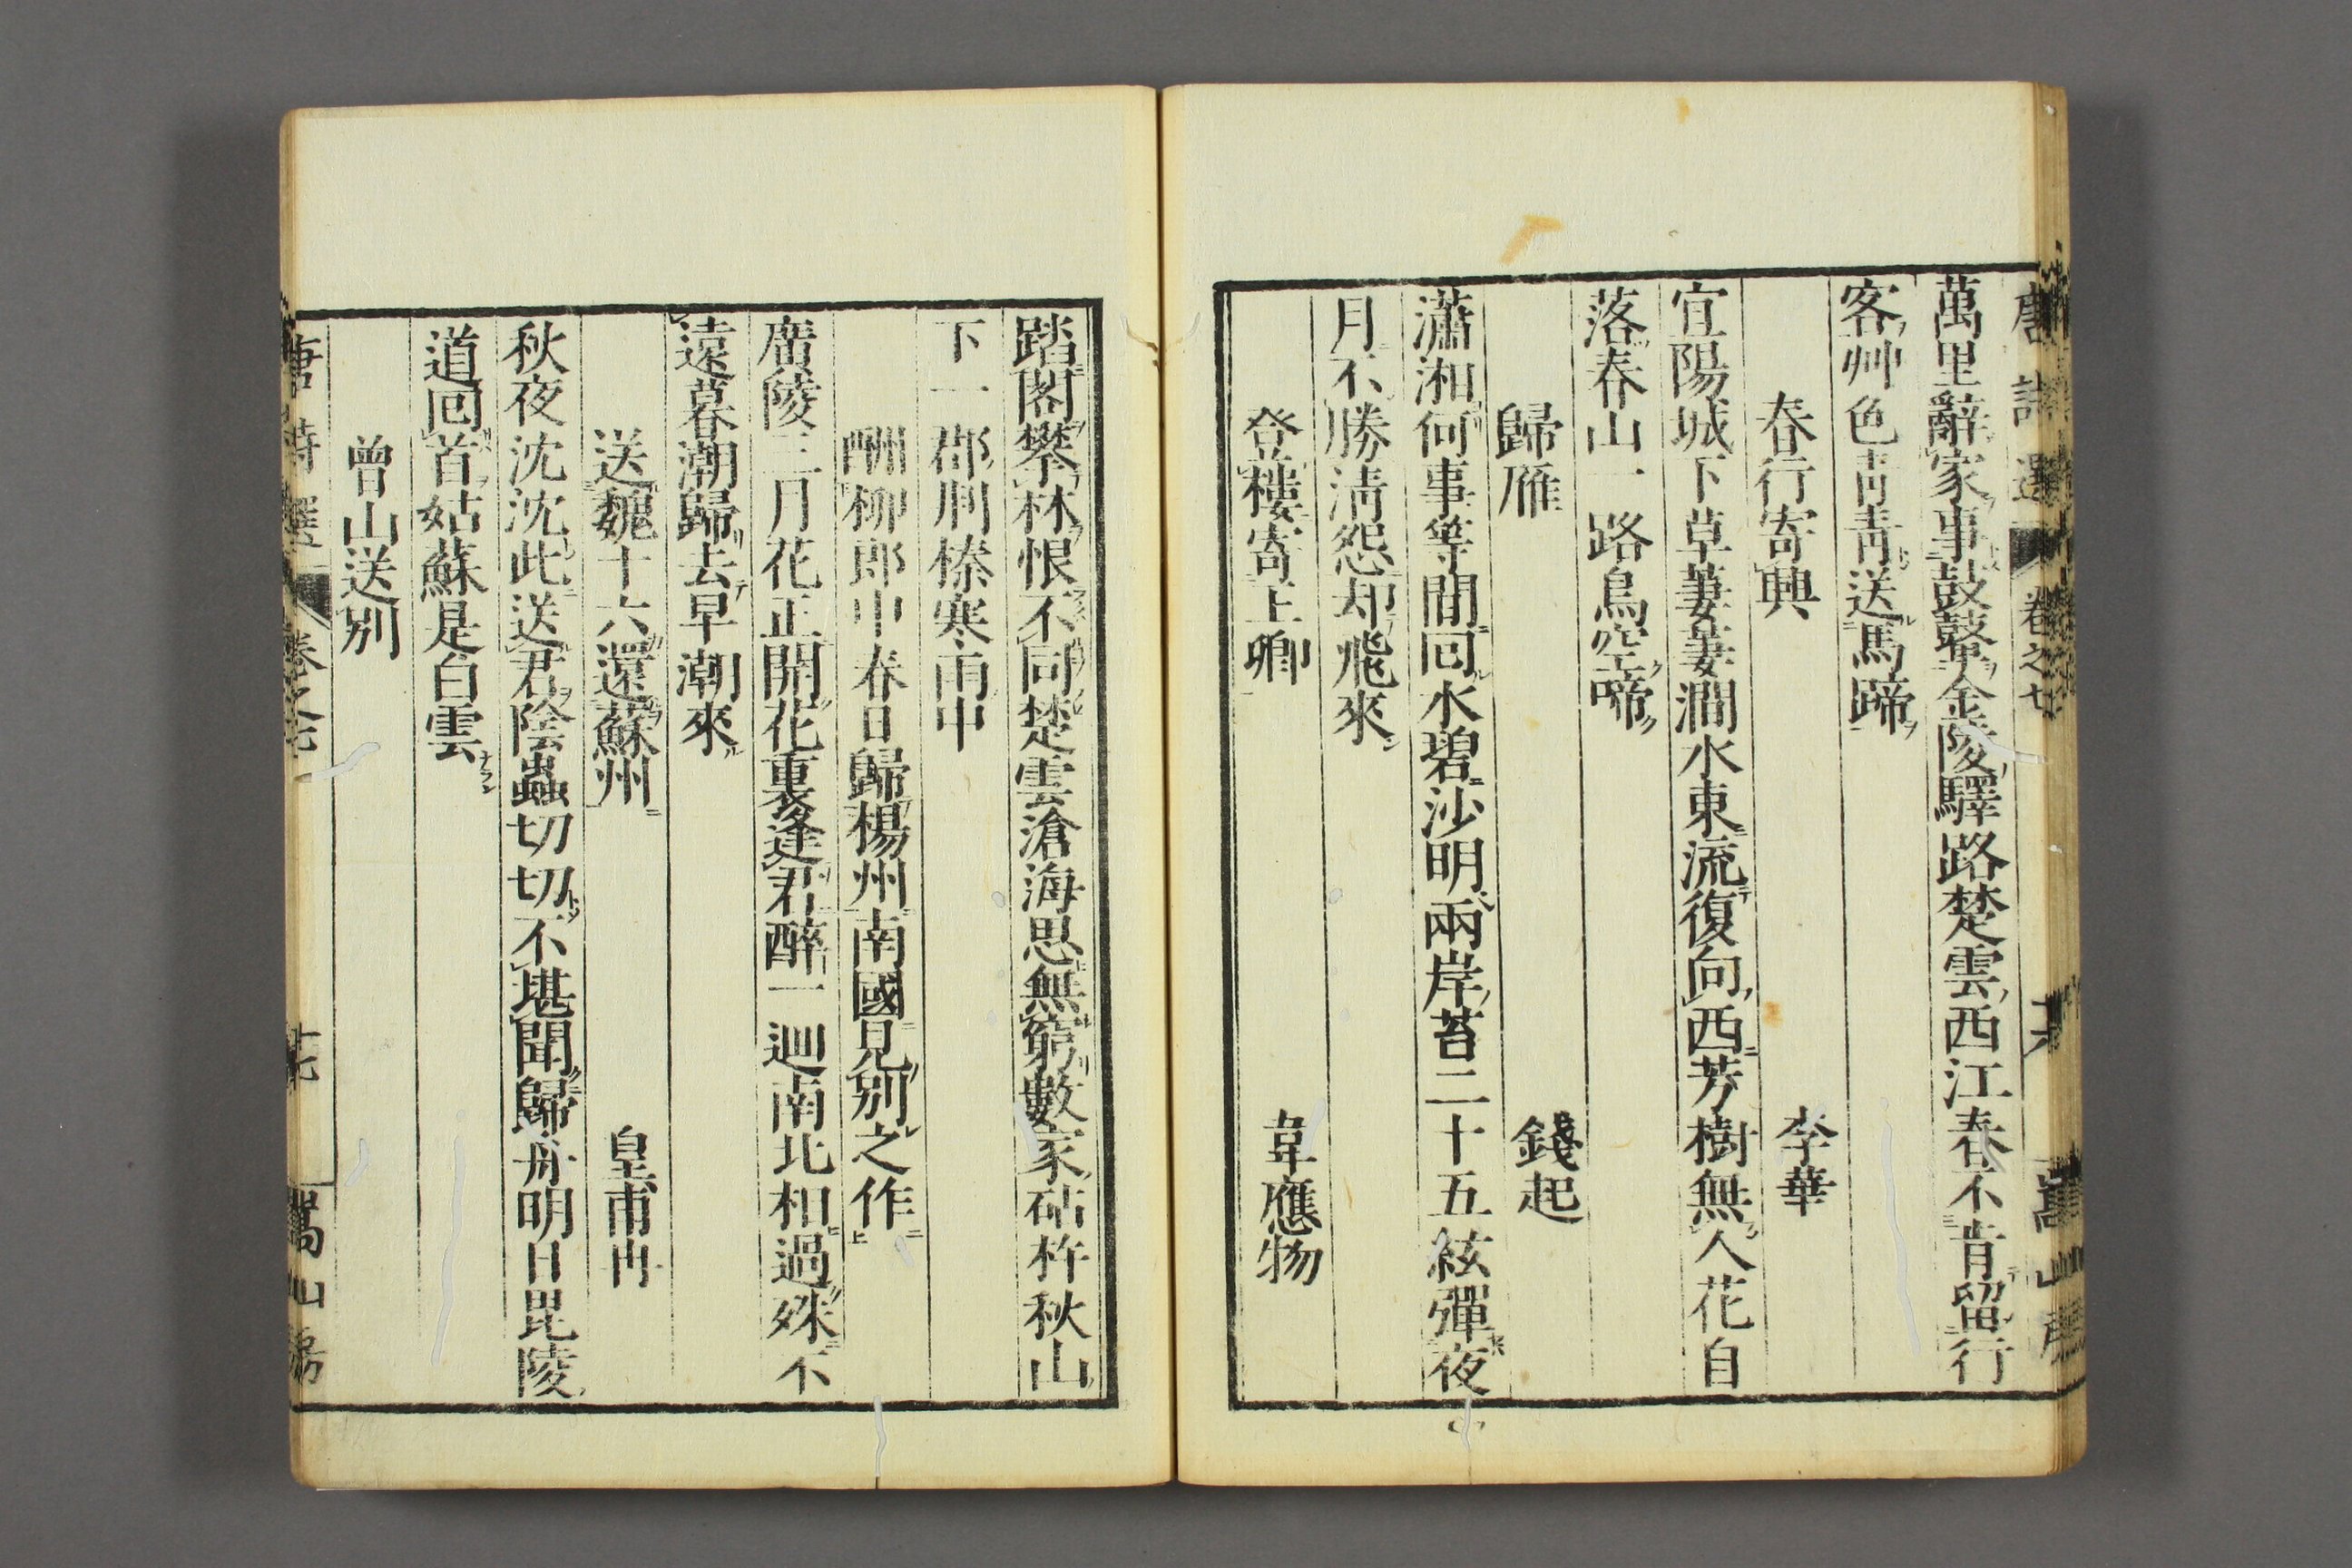 唐詩選 卷之七 十六 嵩山房
萬里辭家事鼓鼙金陵驛路楚雲西江春不肯留行
客艸色青青送馬蹄
春行寄興 李華
宜陽城下草萋萋澗水東流復向西芳樹無人花自
落春山一路鳥空啼
歸雁 錢起
瀟湘何事等閒回水碧沙明兩岸苔二十五絃彈夜
月不勝淸怨却飛來
登樓寄王卿 韋應物
踏閣攀林恨不同楚雲滄海思無窮數家砧杵秋山
下一郡荆榛寒雨中
酬柳郎中春日歸楊州南國見別之作
廣陵三月花正開花裏逢君醉一迴南北相過殊不
遠暮潮歸去早潮來
送魏十六還蘇州 皇甫冉
秋夜沈沈此送君陰蟲切切不堪聞歸舟明日毘陵
道回首姑蘇是白雲
曾山送別
唐詩選 卷之七 十七 嵩山房